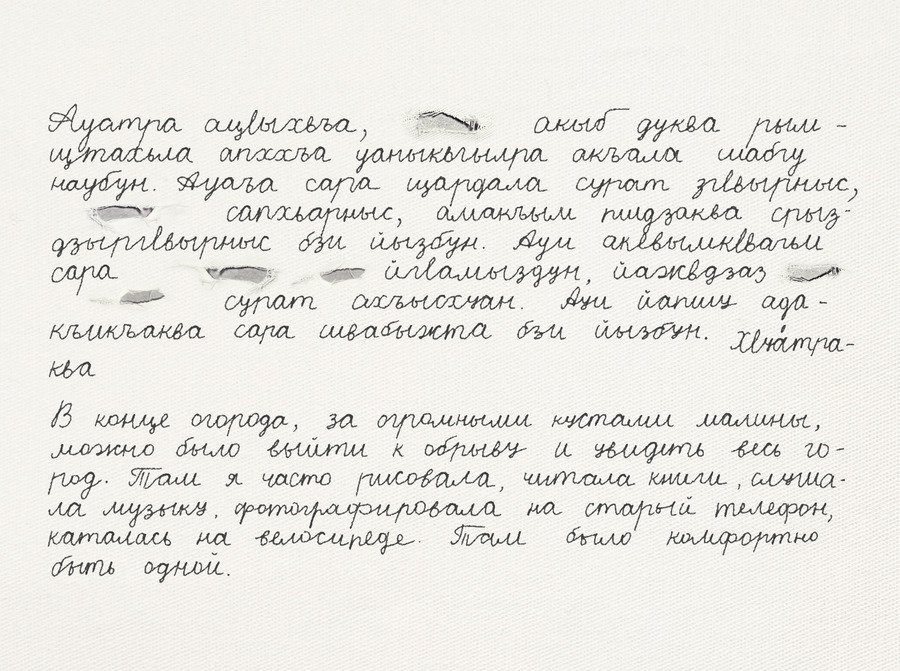 Ауатра ацӏыхвъа, акыб дуква рым-
щтахьла апххъа уаныквгылра акъала шабгу
наубун. Ауаъа сара щардала сурат згӏвырныс,
сапхьарныс, амакъым пшдзаква срыз-
дзыргӏвырныс бзи йызбун. Ауи акӏвымкӏвагьи
сара йгӏамыздун, йажвдзаз
сурат ахъысхуан. Ауи йапшу ада-
къикъаква сара швабыжта бзи йызбун. Хӏчáтра-
ква
В конце огорода, за огромными кустами малины,
можно было выйти к обрыву и увидеть весь го-
род. Там я часто рисовала, читала книги, слуша-
ла музыку, фотографировала на старый телефон,
каталась на велосипеде. Там было комфортно
быть одной.